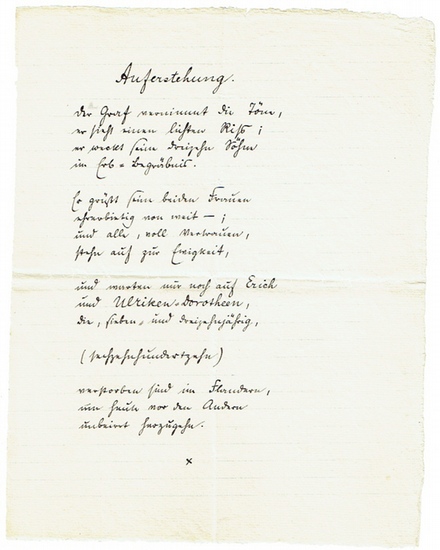 Auferstehung.
der Graf vernimmt die Töne,
er sieht einen lichten Riß;
er weckt seine dreizehn Söhne
im Erb=Begräbnis.
Er grüßt seine beiden Frauen
ehrerbietig von weit —;
und alle, voll Vertrauen,
stehn auf zur Ewigkeit,
und warten nur noch auf Erich
und Ulriken-Dorotheen,
die, sieben- und dreizehnjährig,
(sechzehnhundertzehn)
verstorben sind im Flandern,
um heute vor den Andern
unbeirrt herzugehn.
x